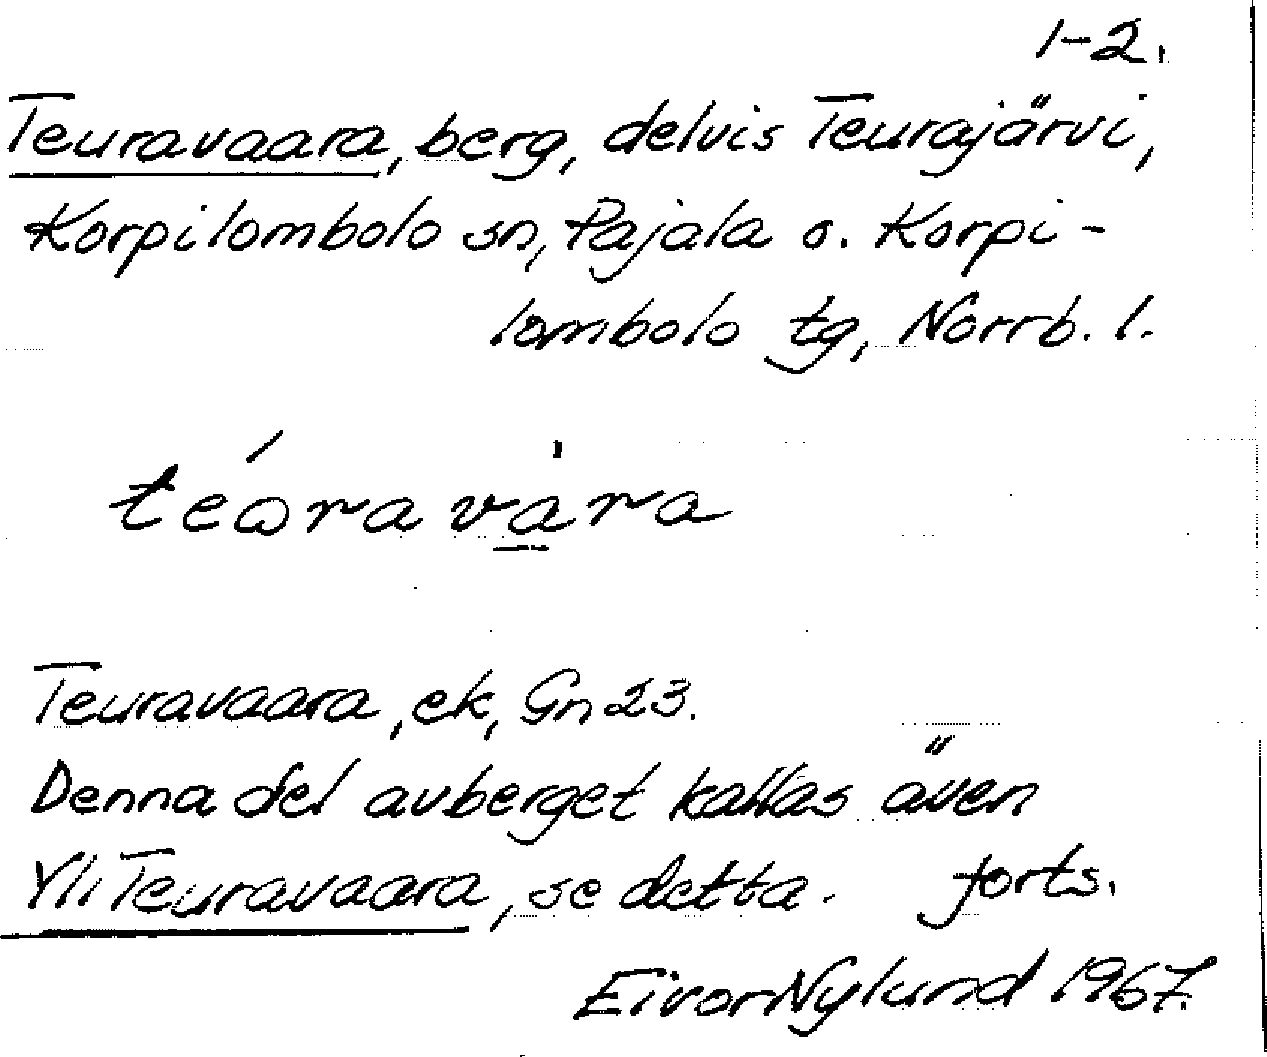 1-2.
Teuravaara, berg, delvis Teurajärvi,
Korpilombolo sn, Pajala o. Korpi-
lombolo tg, Norrb. l.
téɷravàra
Teuravaara, ek, Gn 23.
Denna del av berget kallas även
Yli Teuravaara, se detta. forts.
Eivor Nylund 1967.